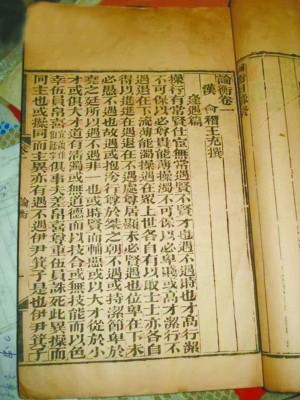 論衡卷一
漢會稽王充撰
逢遇篇
操行有常賢仕宦無常遇賢不賢才也遇不遇時也才高行潔
不可保以必尊貴能薄操濁不可保以必卑賤或高才潔行不
遇退在下流薄能濁操遇在眾上世各自有以取士士亦各自
得以進進在遇退在不遇處尊居顯未必賢遇也位卑在下未
必愚不遇也故遇或抱洿行尊於桀之朝不遇或持潔節卑於
堯之廷所以遇不遇非一也或時賢而輔惡或以大才從於小
才或俱大才道有清濁或無道德而以技合或無技能而以色
幸伍員帛喜俱事夫差帛喜尊重伍員誅死此異操而
同主也或操同而主異亦有遇不遇伊尹箕子是也伊尹箕子
論衡